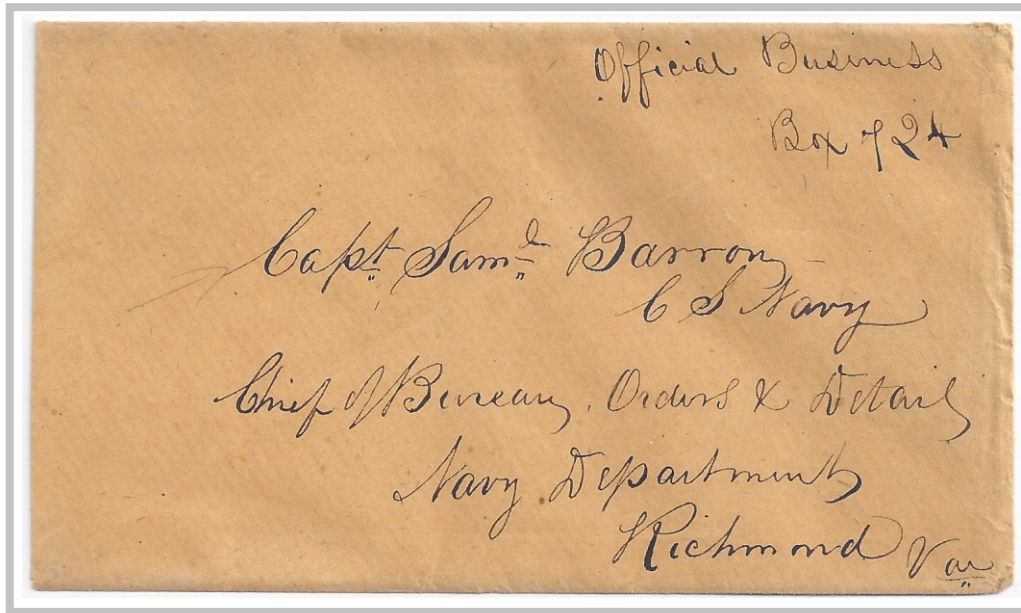 Official Business
Box 724
Capt Saml Barron
C S Navy
Chief of Bureau, Orders & Detail
Navy Department
Richmond Va